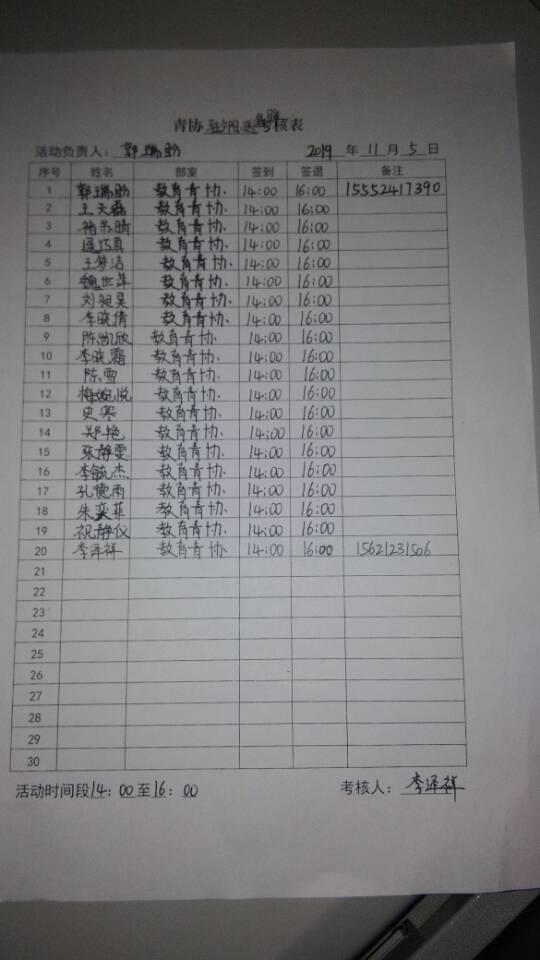 青协 考核表
活动负责人： 郭瑞盼 2019 年 11 月 5 日
序号 姓名 部室 签到 签退 备注
1 郭瑞盼 教育青协. 14:00 16:00 15552417390
2 王天磊 教育青协. 14:00 16:00
3 教育青协. 14:00 16:00
4 教育青协. 14:00 16:00
5 王梦洁 教育青协. 14:00 16:00
6 教育青协. 14:00 16:00
7 刘昶昊 教育青协. 14:00 16:00
8 李晓倩 教育青协. 14:00 16:00
9 陈凯欣 教育青协. 14:00 16:00
10 李晓霜 教育青协. 14:00 16:00
11 陈雪 教育青协. 14:00 16:00
12 梅婉悦 教育青协. 14:00 16:00
13 史寒 教育青协. 14:00 16:00
14 郑艳 教育青协. 14:00 16:00
15 张静雯 教育青协. 14:00 16:00
16 李毓杰 教育青协. 14:00 16:00
17 孔德雨 教育青协. 14:00 16:00
18 朱奕菲 教育青协. 14:00 16:00
19 祝静仪 教育青协. 14:00 16:00
20 李泽祥 教育青协. 14:00 16:00 15621231506
21
22
23
24
25
26
27
28
29
30
活动时间段14：00至16：00 考核人： 李泽祥